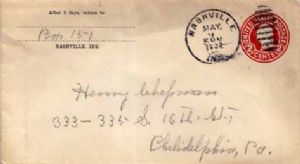 After 5 days, return to
Box 157
NASHVILLE, IND.
NASHVILLE
MAY
5 PM
1932
IND.
UNITED STATES
2 CENTS 2
Henry Chapman
333-335 S. 16th St,
Philidelphia, Pa.